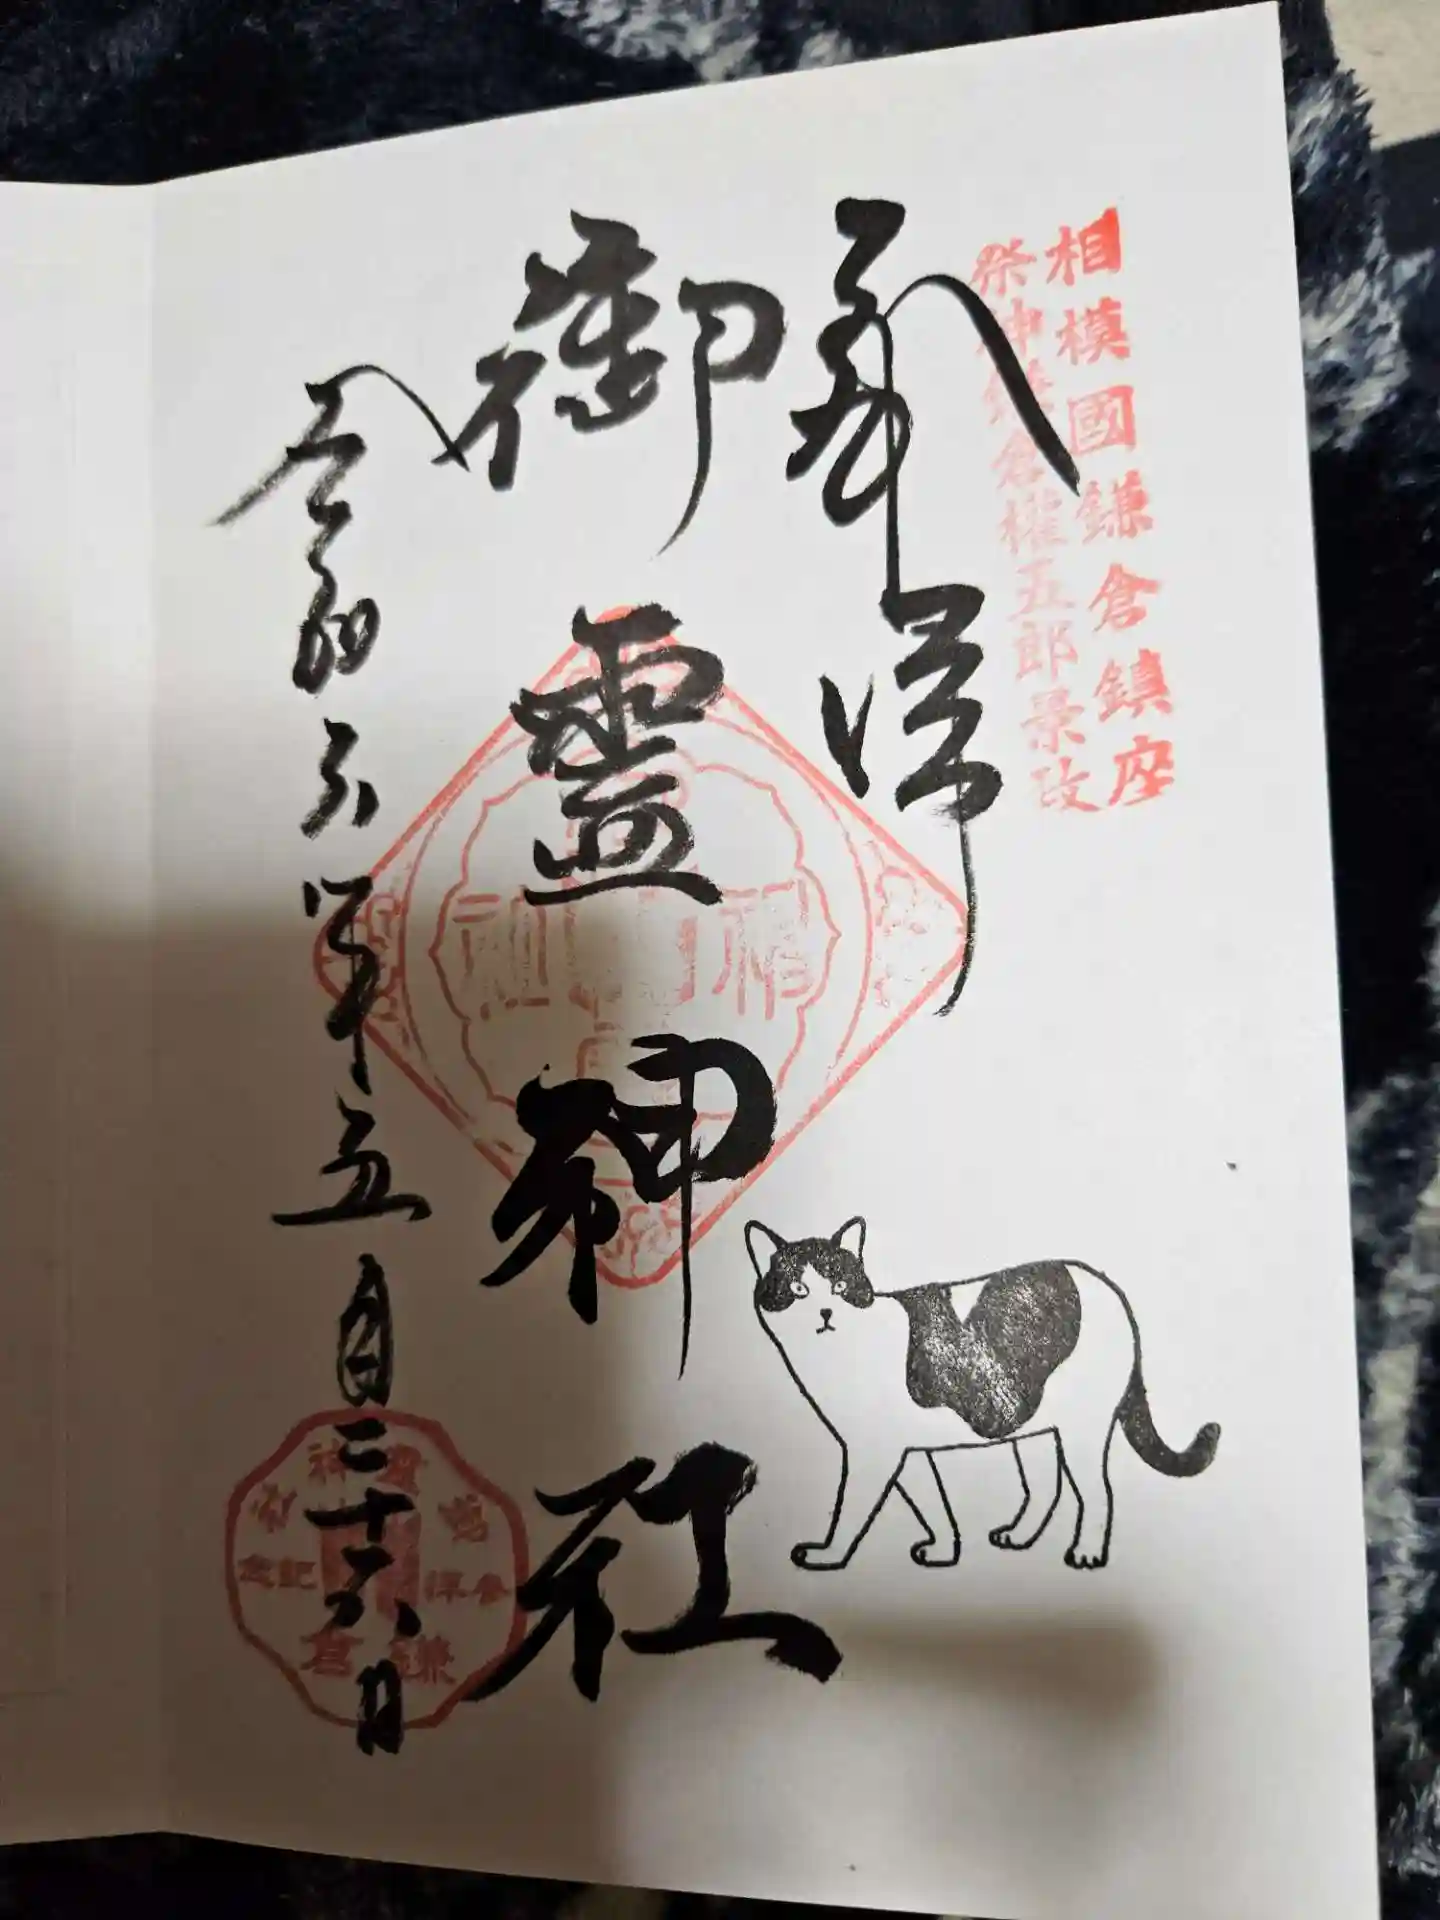 相模國鎌倉鎮座
祭神鎌倉權五郎景政
奉拝
御霊神社
令和六年五月二十六日
御霊神社
参拝記念
鎌倉